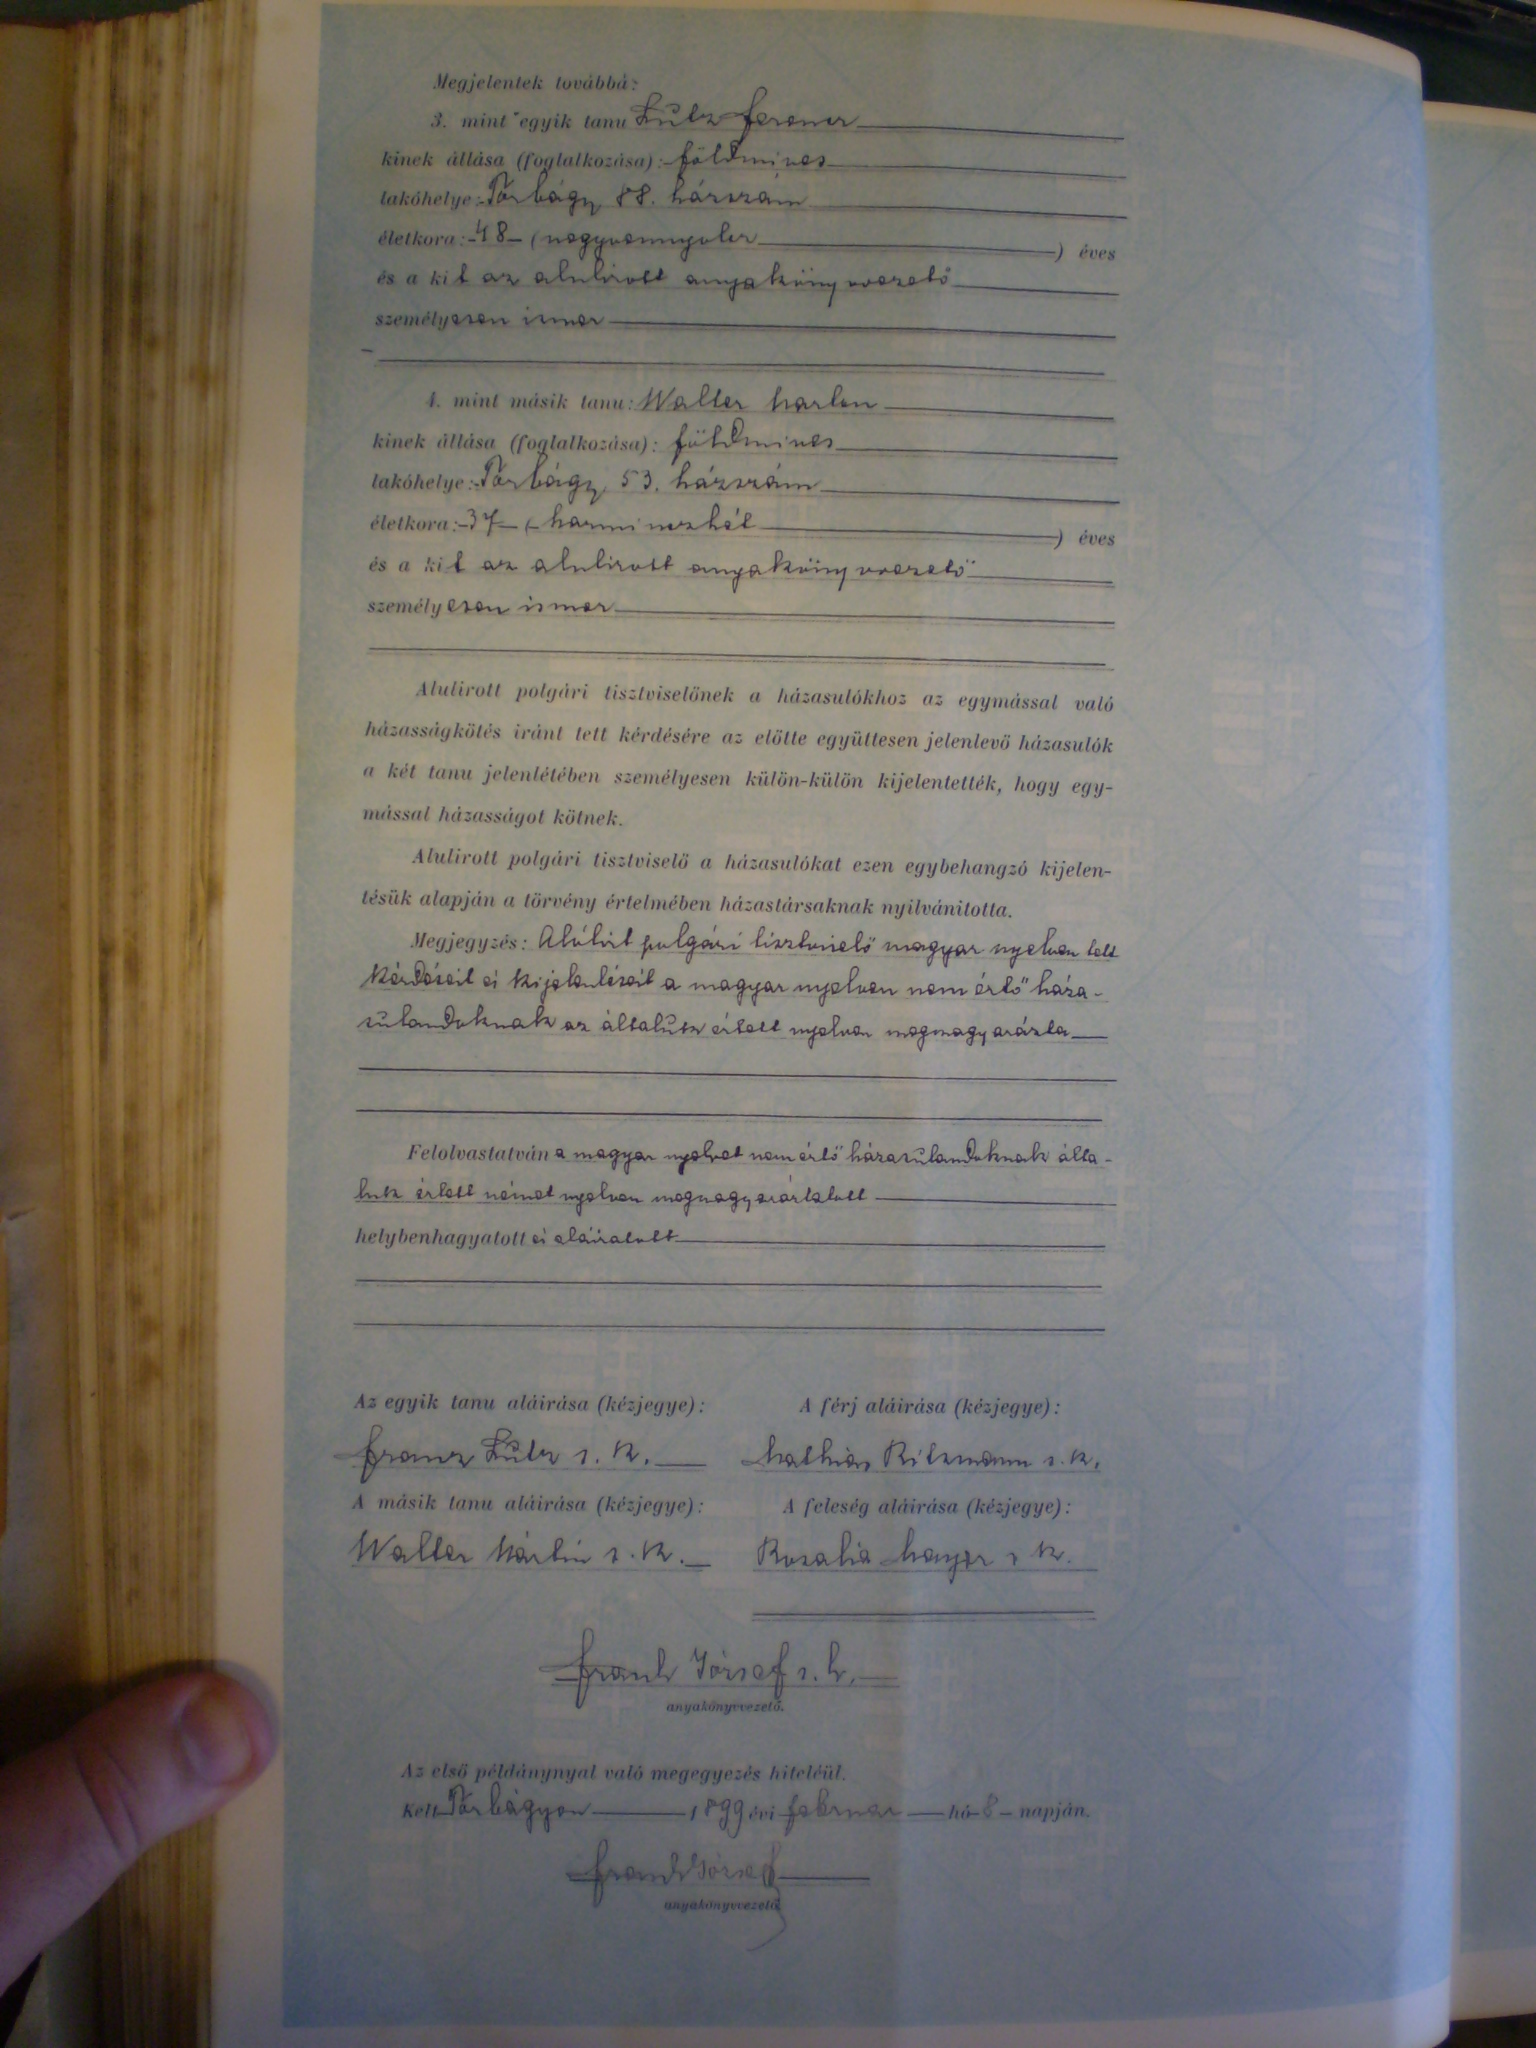 Megjelentek továbbá:
3. mint egyik tanu Lutz Ferencz
kinek állása (foglalkozása): földmives
lakóhelye: Torbágy 88. házszám
életkora: 48 (negyvennyolcz ) éves
és a kit az alulirott anyakönyvvezető
személyesen ismer
4. mint másik tanu: Walter Márton
kinek állása (foglalkozása): földmives
lakóhelye: Torbágy 53. házszám
életkora: 37 (harminczhét ) éves
és a kit az alulirott anyakönyvvezető
személyesen ismer
Alulirott polgári tisztviselőnek a házasulókhoz az egymással való
házasságkötés iránt tett kérdésére az előtte együttesen jelenlevő házasulók
a két tanu jelenlétében személyesen külön-külön kijelentették, hogy egy-
mással házasságot kötnek.
Alulirott polgári tisztviselő a házasulókat ezen egybehangzó kijelen-
tésük alapján a törvény értelmében házastársaknak nyilvánitotta.
Megjegyzés: Alólirt polgári tisztviselő magyar nyelven tett
kérdéseit és kijelentéseit a magyar nyelven nem értő háza-
sulandoknak az általuk értett nyelven megmagyarázta
Felolvastatván a magyar nyelvet nem értő házasulandoknak álta-
luk értett német nyelven megmagyaráztatott
helybenhagyatott és aláiratott
Az egyik tanu aláirása (kézjegye): A férj aláirása (kézjegye):
Franz Lutz s. k. Mathias Ritzmann s. k.
A másik tanu aláirása (kézjegye): A feleség aláirása (kézjegye):
Walter Mártin s. k. Rozalia Mayer s k.
Frank József s. k.
anyakönyvvezető.
Az első példánynyal való megegyezés hiteléül.
Kelt Torbágyon 1899 évi februar hó 8 napján.
Frank József
anyakönyvvezető